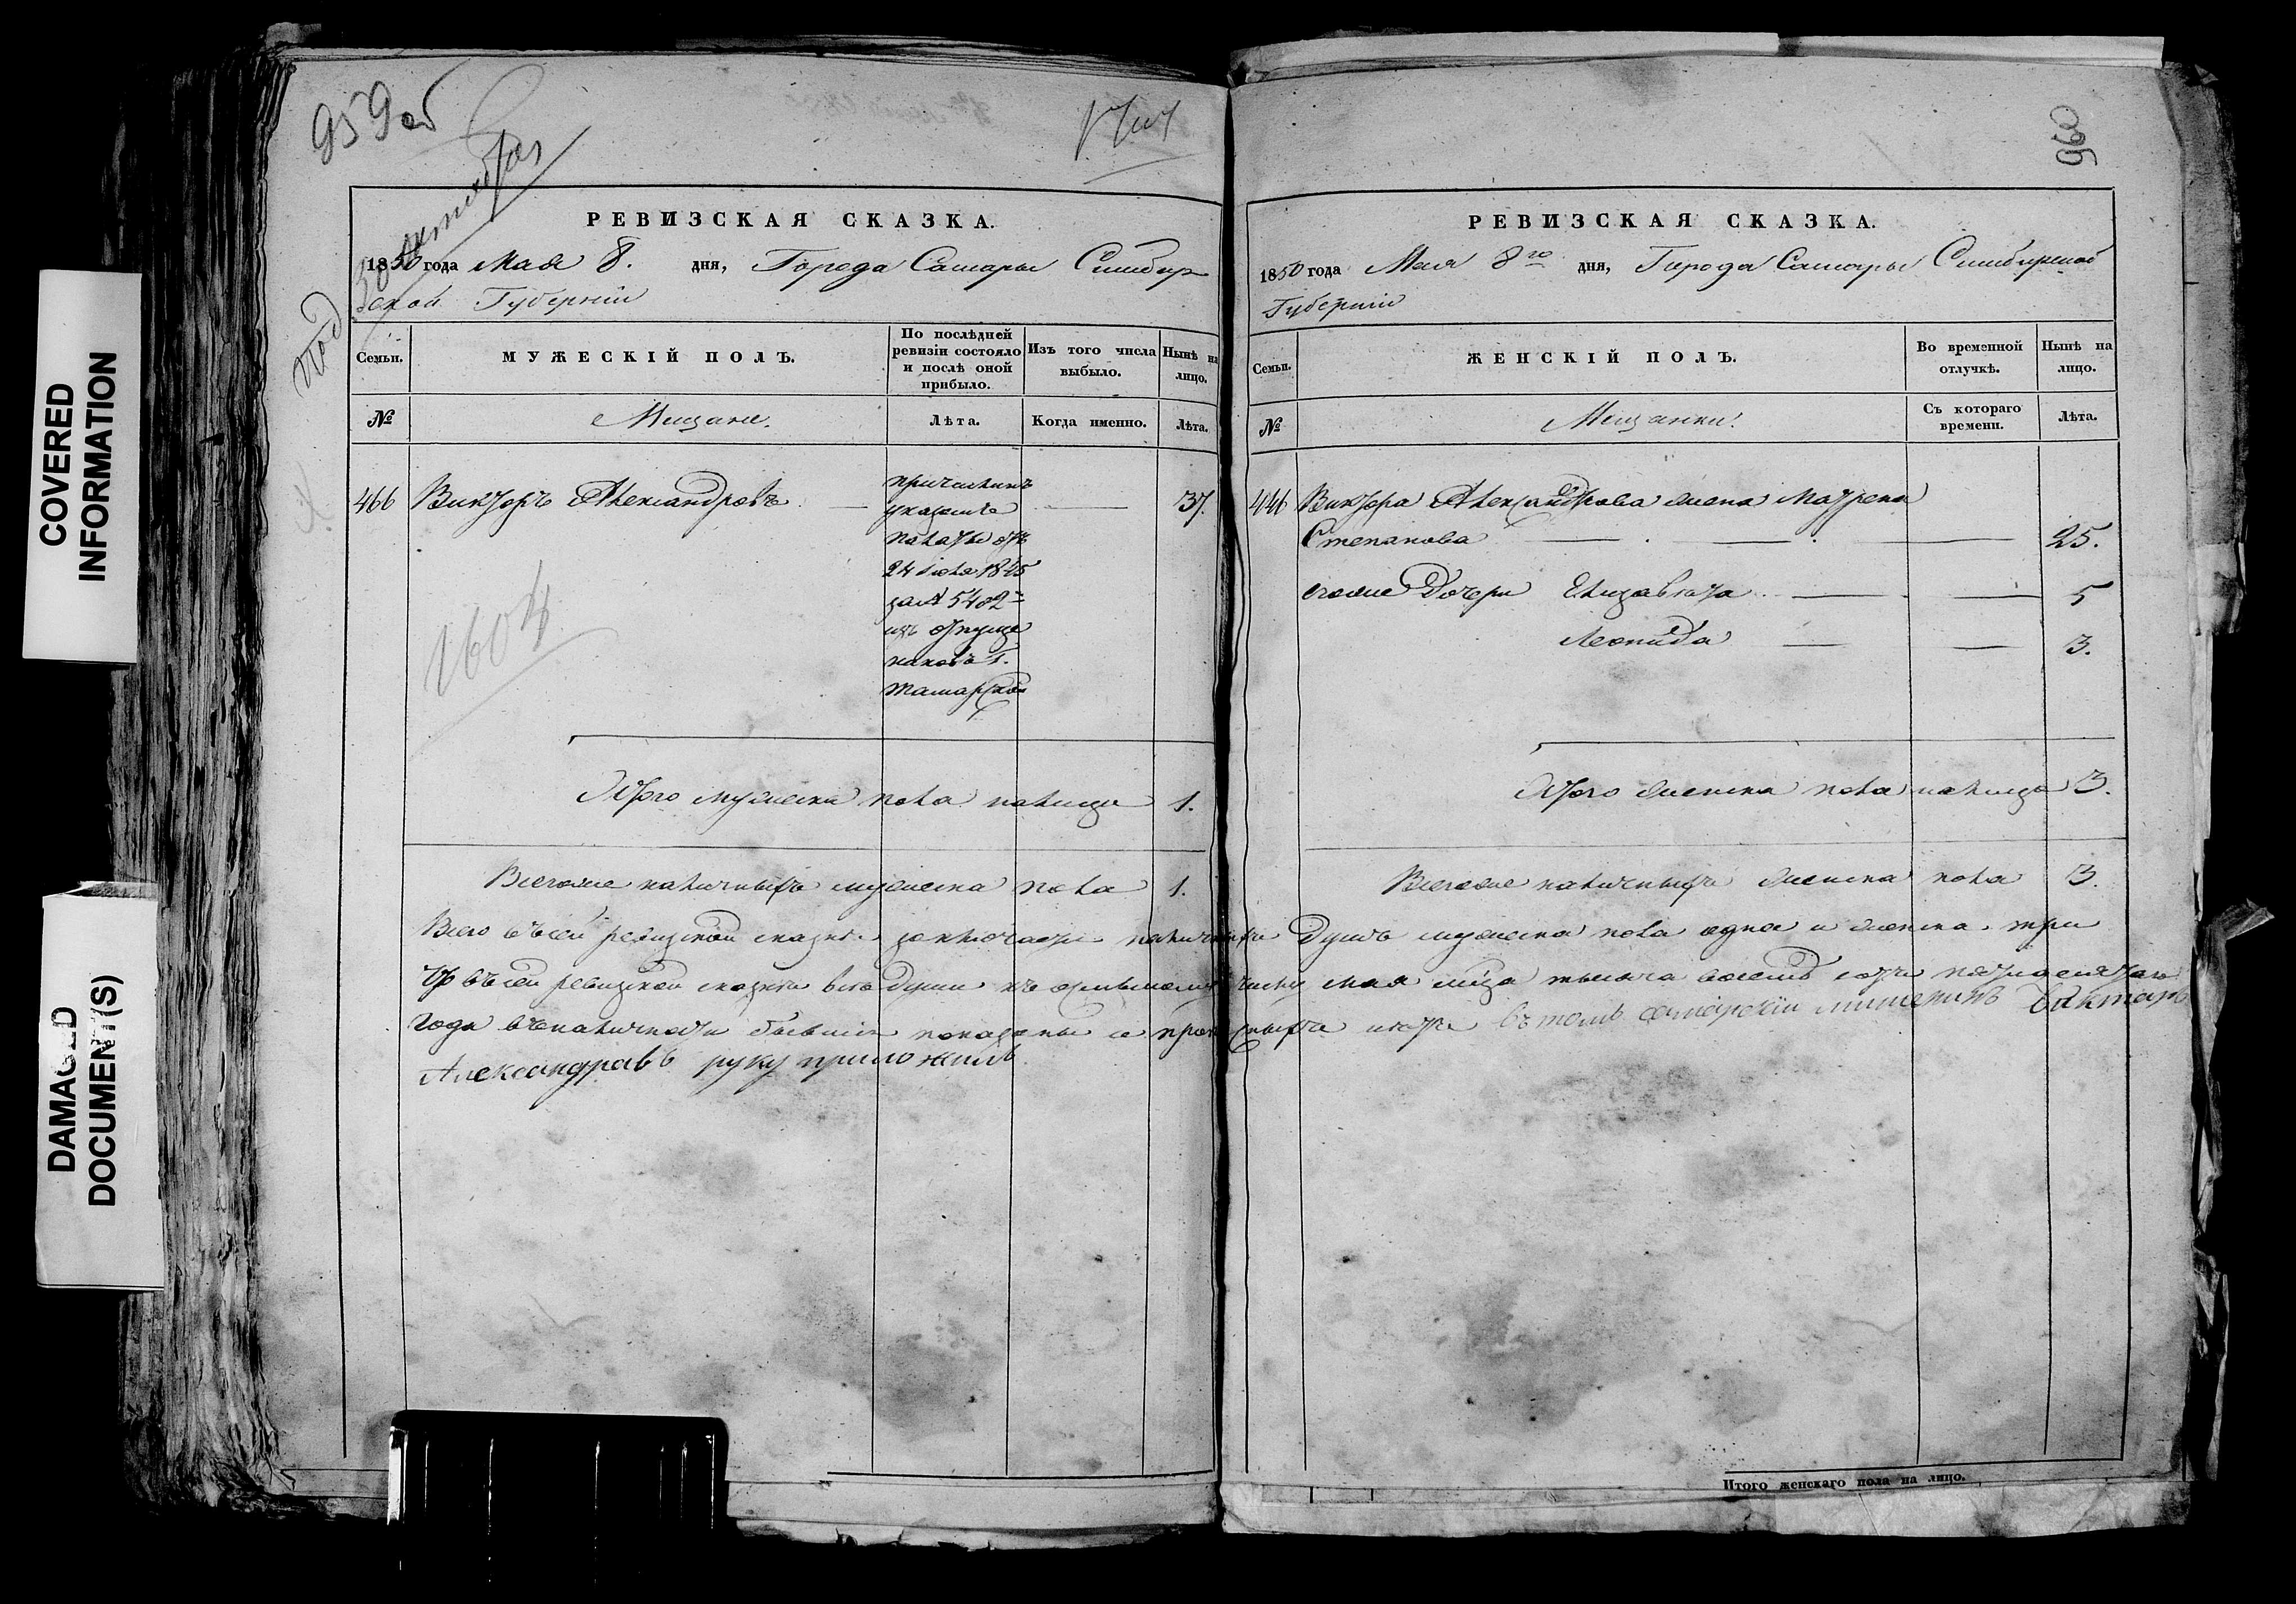 COVERED
INFORMATION
DAMAGED
DOCUMENT(S)
959об
под
октября
РЕВИЗСКАЯ СКАЗКА.
1850 года Мая 8. дня, Города Самары Симбир
ской Губернии
Семьи. МУЖЕСКІЙ ПОЛЪ. По послѣдней ревизіи состояло и послѣ оной прибыло. Изъ того числа выбыло. Нынѣ на лицо.
№ Мещане. Лѣта. Когда именно. Лѣта.
466 Викторъ Александровъ — 37.
причисленъ
указомъ
палаты отъ
24 Іюля 1845
за № 5402
изъ отпуще
никовъ Г.
1604
Итого мужеска пола налицо 1.
Всегоже наличныхъ мужеска пола 1.
960
РЕВИЗСКАЯ СКАЗКА.
1850 года Мая 8го дня, Города Самары Симбирской
Губерніи
Семьи. ЖЕНСКІЙ ПОЛЪ. Во временной отлучкѣ. Нынѣ на лицо.
№ Мещанки. Съ котораго времени. Лѣта.
446 Виктора Александрова жена Матрена
Степанова — — — 25.
егоже Дочери Елизавета — — 5
Леонида — — 3.
Итого женска пола налицо 3.
Всегоже наличныхъ женска пола 3.
Всего въ сей ревизской сказке заключается наличныхъ Душъ мужеска пола одна и женска три
Что въ сей ревизской сказке все Души къ осьмому числу мая м-ца тысяча восемь сотъ пятидесятаго
года въ наличности бывшія показаны и прописныхъ нетъ в томъ самарскии мишенинъ Виктаръ
Александравъ руку приложилъ
Итого женскаго пола на лицо.